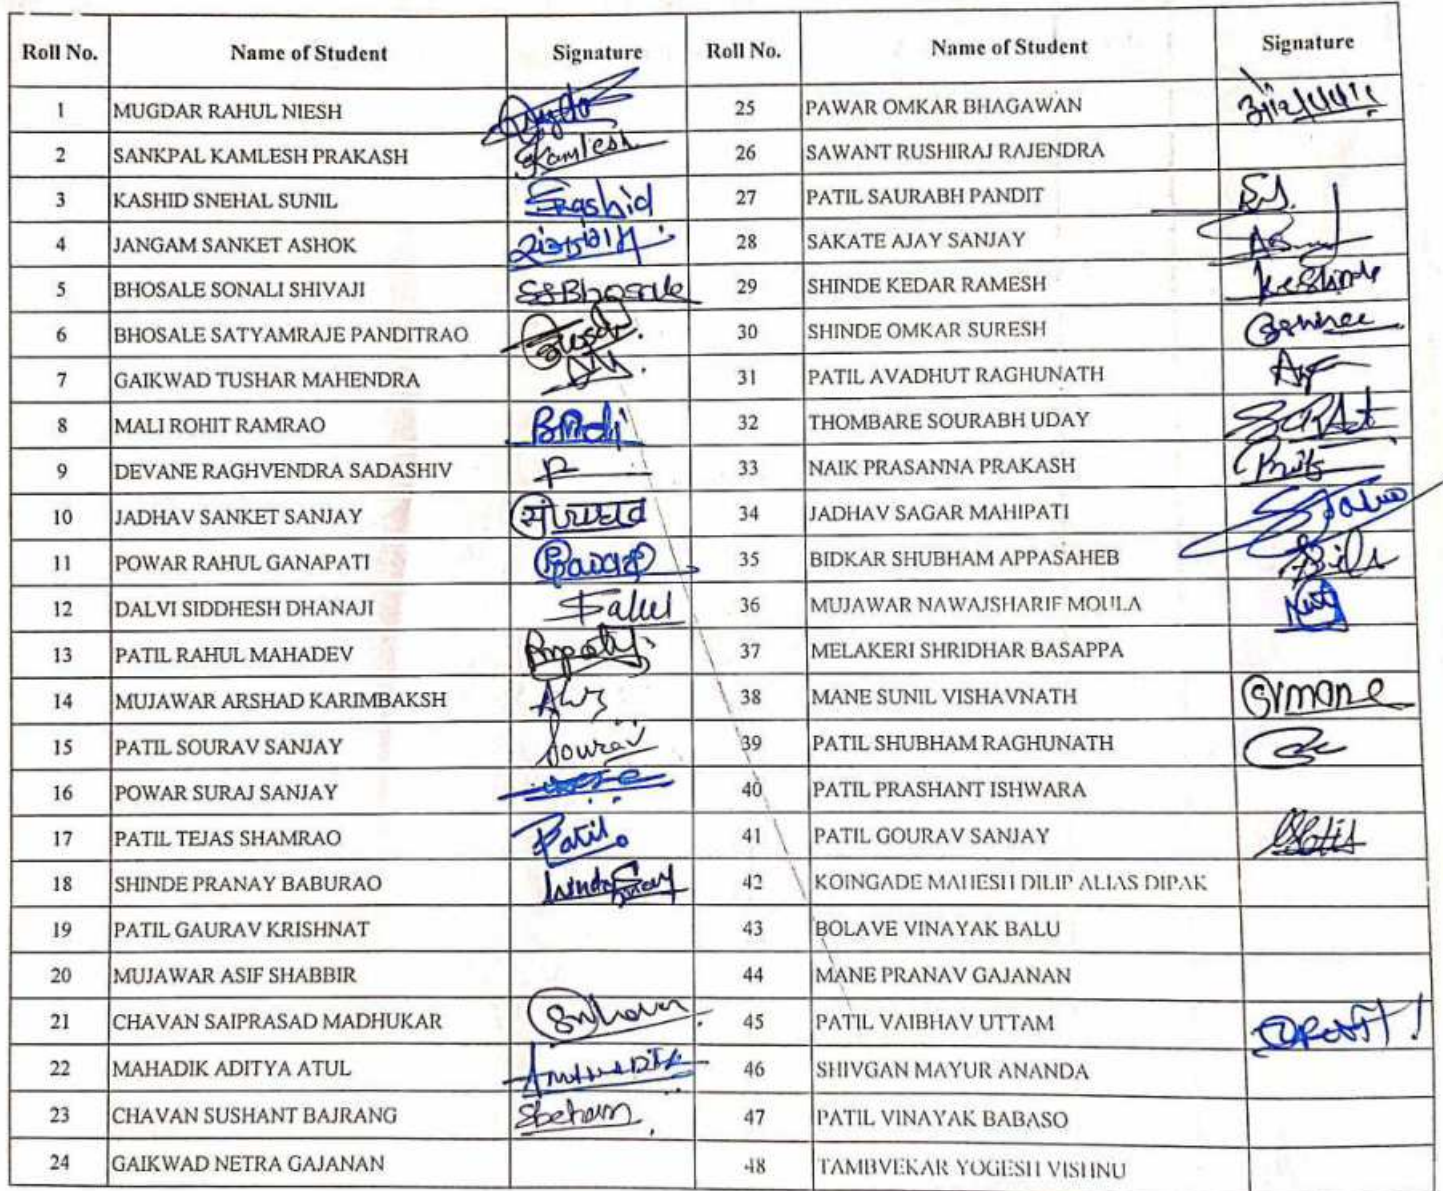 Roll No. Name of Student Signature Roll No. Name of Student Signature
1 MUGDAR RAHUL NIESH 25 PAWAR OMKAR BHAGAWAN
2 SANKPAL KAMLESH PRAKASH Kamlesh 26 SAWANT RUSHIRAJ RAJENDRA
3 KASHID SNEHAL SUNIL 27 PATIL SAURABH PANDIT
4 JANGAM SANKET ASHOK 28 SAKATE AJAY SANJAY
5 BHOSALE SONALI SHIVAJI SSBhosale 29 SHINDE KEDAR RAMESH
6 BHOSALE SATYAMRAJE PANDITRAO 30 SHINDE OMKAR SURESH
7 GAIKWAD TUSHAR MAHENDRA 31 PATIL AVADHUT RAGHUNATH
8 MALI ROHIT RAMRAO 32 THOMBARE SOURABH UDAY
9 DEVANE RAGHVENDRA SADASHIV 33 NAIK PRASANNA PRAKASH
10 JADHAV SANKET SANJAY 34 JADHAV SAGAR MAHIPATI
11 POWAR RAHUL GANAPATI 35 BIDKAR SHUBHAM APPASAHEB
12 DALVI SIDDHESH DHANAJI 36 MUJAWAR NAWAJSHARIF MOULA
13 PATIL RAHUL MAHADEV 37 MELAKERI SHRIDHAR BASAPPA
14 MUJAWAR ARSHAD KARIMBAKSH 38 MANE SUNIL VISHAVNATH SVmane
15 PATIL SOURAV SANJAY Sourav 39 PATIL SHUBHAM RAGHUNATH
16 POWAR SURAJ SANJAY 40 PATIL PRASHANT ISHWARA
17 PATIL TEJAS SHAMRAO Patil 41 PATIL GOURAV SANJAY
18 SHINDE PRANAY BABURAO 42 KOINGADE MAHESH DILIP ALIAS DIPAK
19 PATIL GAURAV KRISHNAT 43 BOLAVE VINAYAK BALU
20 MUJAWAR ASIF SHABBIR 44 MANE PRANAV GAJANAN
21 CHAVAN SAIPRASAD MADHUKAR 45 PATIL VAIBHAV UTTAM
22 MAHADIK ADITYA ATUL 46 SHIVGAN MAYUR ANANDA
23 CHAVAN SUSHANT BAJRANG 47 PATIL VINAYAK BABASO
24 GAIKWAD NETRA GAJANAN 48 TAMBVEKAR YOGESH VISHNU